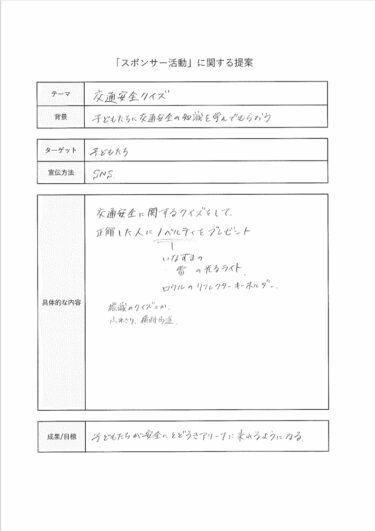 「スポンサー活動」に関する提案
テーマ
交通安全クイズ
背景
子どもたちに交通安全の知識を学んでもらおう
ターゲット
子どもたち
宣伝方法
SNS
具体的な内容
交通安全に関するクイズをして、
正解した人にノベルティをプレゼント
いなずまの
雷 の光るライト
のリフレクターキーホルダー
標識のクイズとか
成果/目標
子どもたちが安全にとどろきアリーナに来れるようになる